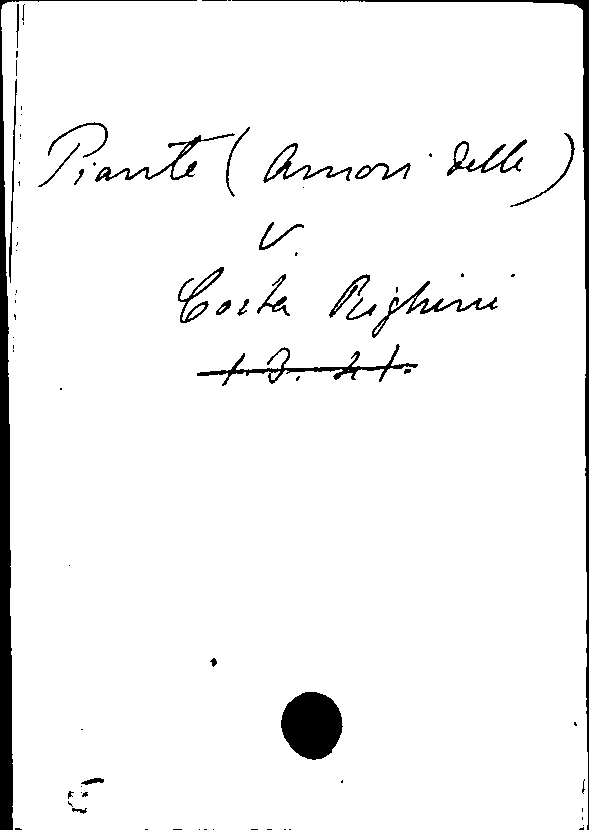 Piante (Amori delle)
V.
Costa Righini
1.3.41.